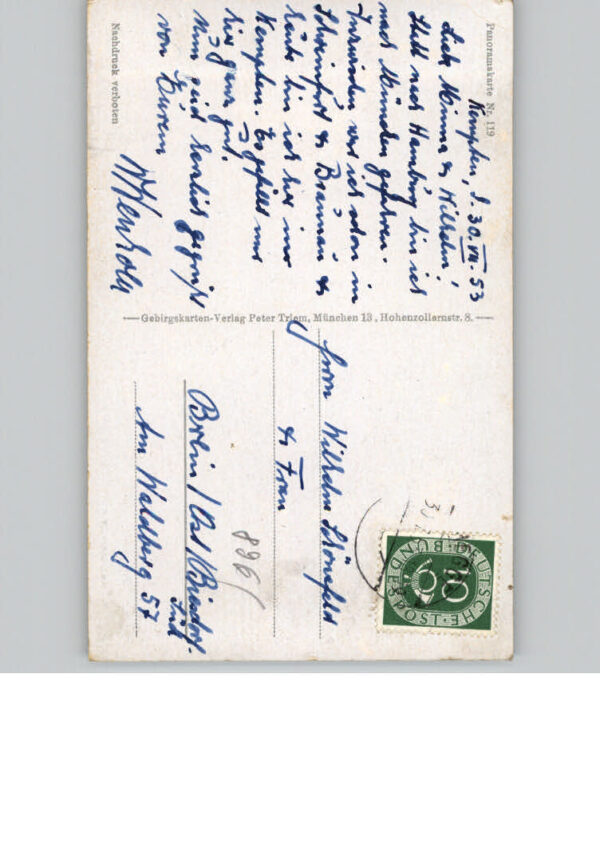 Panoramakarte Nr. 119
Kempten, d. 30. VII. 53
Liebe Minna & Wilhelm!
Statt nach Hamburg bin ich
nach München gefahren.
Inzwischen war ich schon in
Schweinfurt & Braunau &
heute bin ich hier in
Kempten. Es gefällt mir
hier ganz gut.
Nun seid herzlich gegrüßt
von Eurem
Nachdruck verboten
Gebirgskarten-Verlag Peter Triem, München 13, Hohenzollernstr. 8.
Herrn Wilhelm Schönefeld
& Frau
Berlin/Ost/Biesdorf-
Süd
Am Waldberg 57
896/
DEUTSCHE BUNDESPOST
10